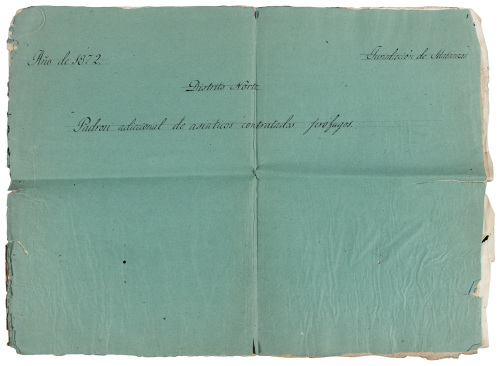 Año de 1872.
Jurisdicción de Matanzas
Distrito Norte
Padron adiccional de asiáticos contratados profugos.